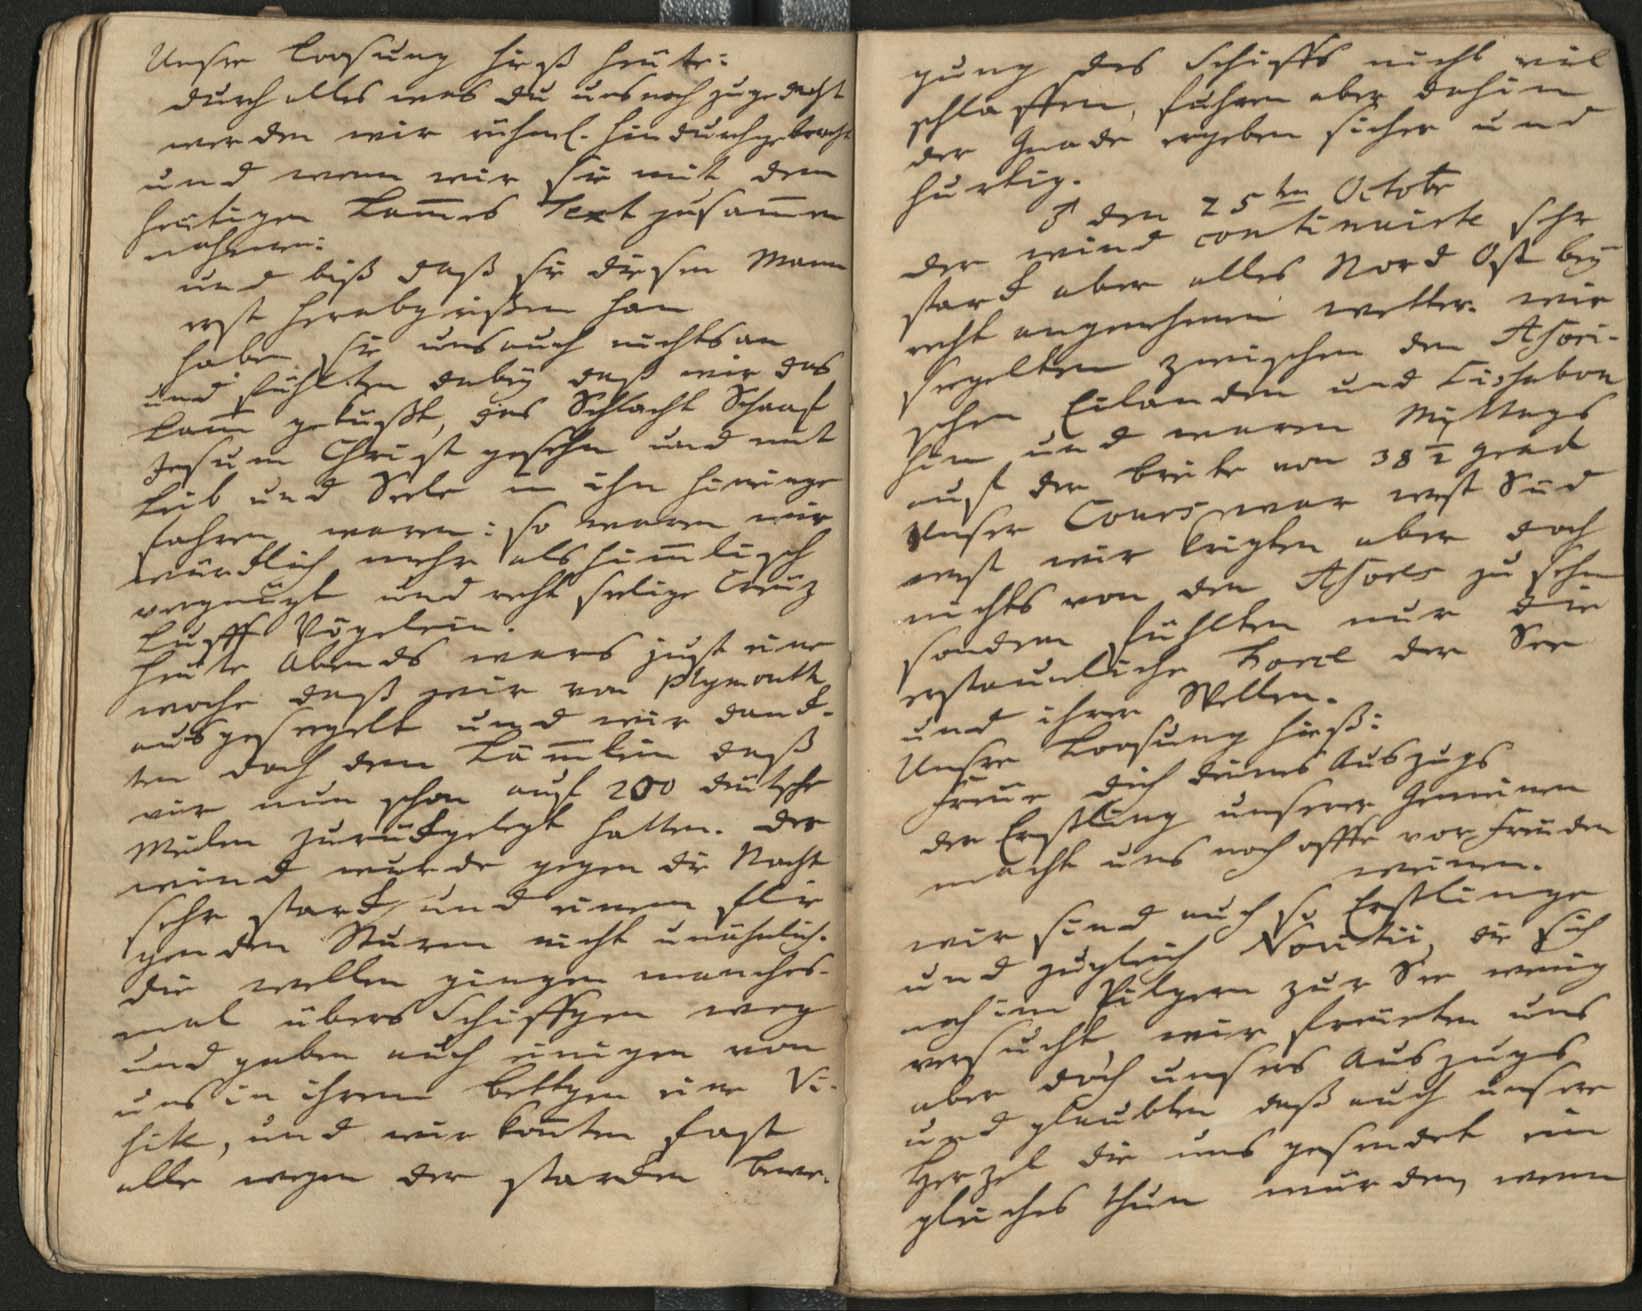 Unsre Loosung hieß heute:
durch alles was du uns noch zugedacht
werden wir rühml. hindurchgebracht
und wenn wir sie mit dem
heutigen Lam̅es Text zusam̅en
nahmen:
und biß daß sie diesen Mann
erst herabgerißen han
haben sie uns auch nichts an
und fühlten dabey daß wir das
Lam̅ gekußt, das Schlacht Schaaf
Jesum Christ gesehn und mit
Leib und Seele in ihn hineinge
fahren waren: so waren wir
würcklich mehr als him̅lisch
vergnügt und recht selige Creuz
Lufft Vögelein.
heute Abends wars just eine
woche daß wir von Plymouth
ausgesegelt und wir danck-
ten doch dem Läm̅lein daß
wir nun schon auf 200 deutsche
Meilen zurückgelegt hatten. der
wind wurde gegen die Nacht
sehr starck, und einem flie
genden Sturm nicht unähnlich.
die wellen giengen manches-
mal übers Schiffgen weg
und gaben auch einigen von
uns in ihrem bettgen eine Vi-
site, und wir kon̅ten fast
alle wegen der starcken bewe-
gung des Schiffs nicht viel
schlaffen, fuhren aber dahin
der Gnade ergeben sicher und
hurtig.
♂ den 25ten Octobr
der wind continuirte sehr
starck aber alles Nord Ost bey
recht angenehmen wetter. wir
segelten zwischen den Asori-
schen Eilanden und Lissabon
hin und waren Mittags
auf der breite von 38 ½ grad
Unser Cours war west Süd
west wir kriegten aber doch
nichts von den Asores zu sehn
sondern fühlten nur die
erstaunliche Force der See
und ihrer Wellen.
Unsre Loosung hieß:
Freue dich deines Auszugs
der Erstling unserer Gemeinen
macht uns noch offte vor Freuden
weinen.
wir sind auch so Erstlinge
und zugleich Novitii, die sich
noch im Pilgern zur See wenig
versucht wir freueten uns
aber doch unsers Auszugs
und glaubten daß auch unsere
Herzel die uns gesendet ein
gleiches thun würden, wenn